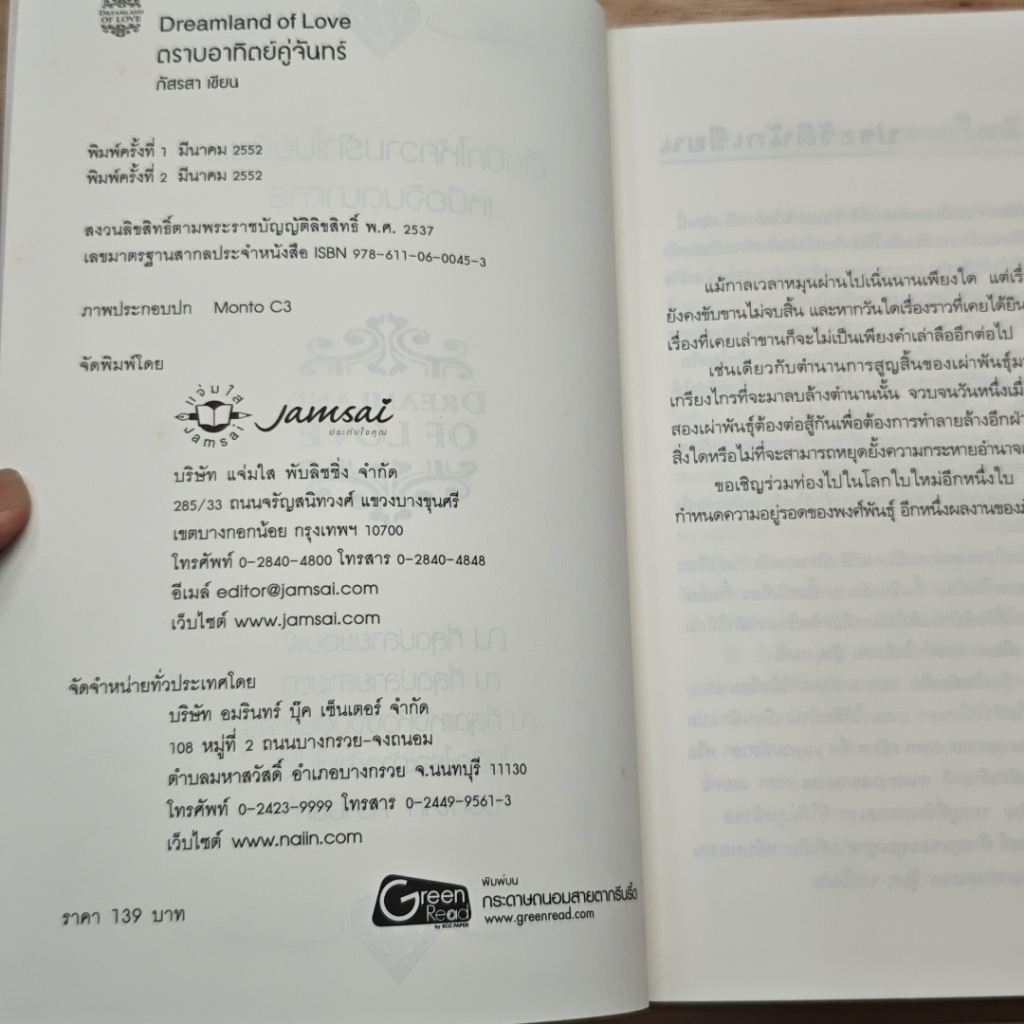 DREAMLAND
OF LOVE
Dreamland of Love
ตราบอาทิตย์คู่จันทร์
ภัสรสา เขียน
พิมพ์ครั้งที่ 1 มีนาคม 2552
พิมพ์ครั้งที่ 2 มีนาคม 2552
สงวนลิขสิทธิ์ตามพระราชบัญญัติลิขสิทธิ์ พ.ศ. 2537
เลขมาตรฐานสากลประจำหนังสือ ISBN 978-611-06-0045-3
ภาพประกอบปก Monto C3
จัดพิมพ์โดย
แจ่มใส
Jamsai
Jamsai
ประทับใจคุณ
บริษัท แจ่มใส พับลิชชิ่ง จำกัด
285/33 ถนนจรัญสนิทวงศ์ แขวงบางขุนศรี
เขตบางกอกน้อย กรุงเทพฯ 10700
โทรศัพท์ 0-2840-4800 โทรสาร 0-2840-4848
อีเมล์ editor@jamsai.com
เว็บไซต์ www.jamsai.com
จัดจำหน่ายทั่วประเทศโดย
บริษัท อมรินทร์ บุ๊ค เซ็นเตอร์ จำกัด
108 หมู่ที่ 2 ถนนบางกรวย-จงถนอม
ตำบลมหาสวัสดิ์ อำเภอบางกรวย จ.นนทบุรี 11130
โทรศัพท์ 0-2423-9999 โทรสาร 0-2449-9561-3
เว็บไซต์ www.naiin.com
ราคา 139 บาท
Green
Read
by SCG PAPER
พิมพ์บน
กระดาษถนอมสายตากรีนรี้ด
www.greenread.com
แม้กาลเวลาหมุนผ่านไปเนิ่นนานเพียงใด แต่เรื่
ยังคงขับขานไม่จบสิ้น และหากวันใดเรื่องราวที่เคยได้ยิน
เรื่องที่เคยเล่าขานก็จะไม่เป็นเพียงคำเล่าลืออีกต่อไป
เช่นเดียวกับตำนานการสูญสิ้นของเผ่าพันธุ์ม
เกรียงไกรที่จะมาลบล้างตำนานนั้น จวบจนวันหนึ่งเมื่
สองเผ่าพันธุ์ต้องต่อสู้กันเพื่อต้องการทำลายล้างอีกฝ่
สิ่งใดหรือไม่ที่จะสามารถหยุดยั้งความกระหายอำนาจ
ขอเชิญร่วมท่องไปในโลกใบใหม่อีกหนึ่งใบ
กำหนดความอยู่รอดของพงศ์พันธุ์ อีกหนึ่งผลงานของ